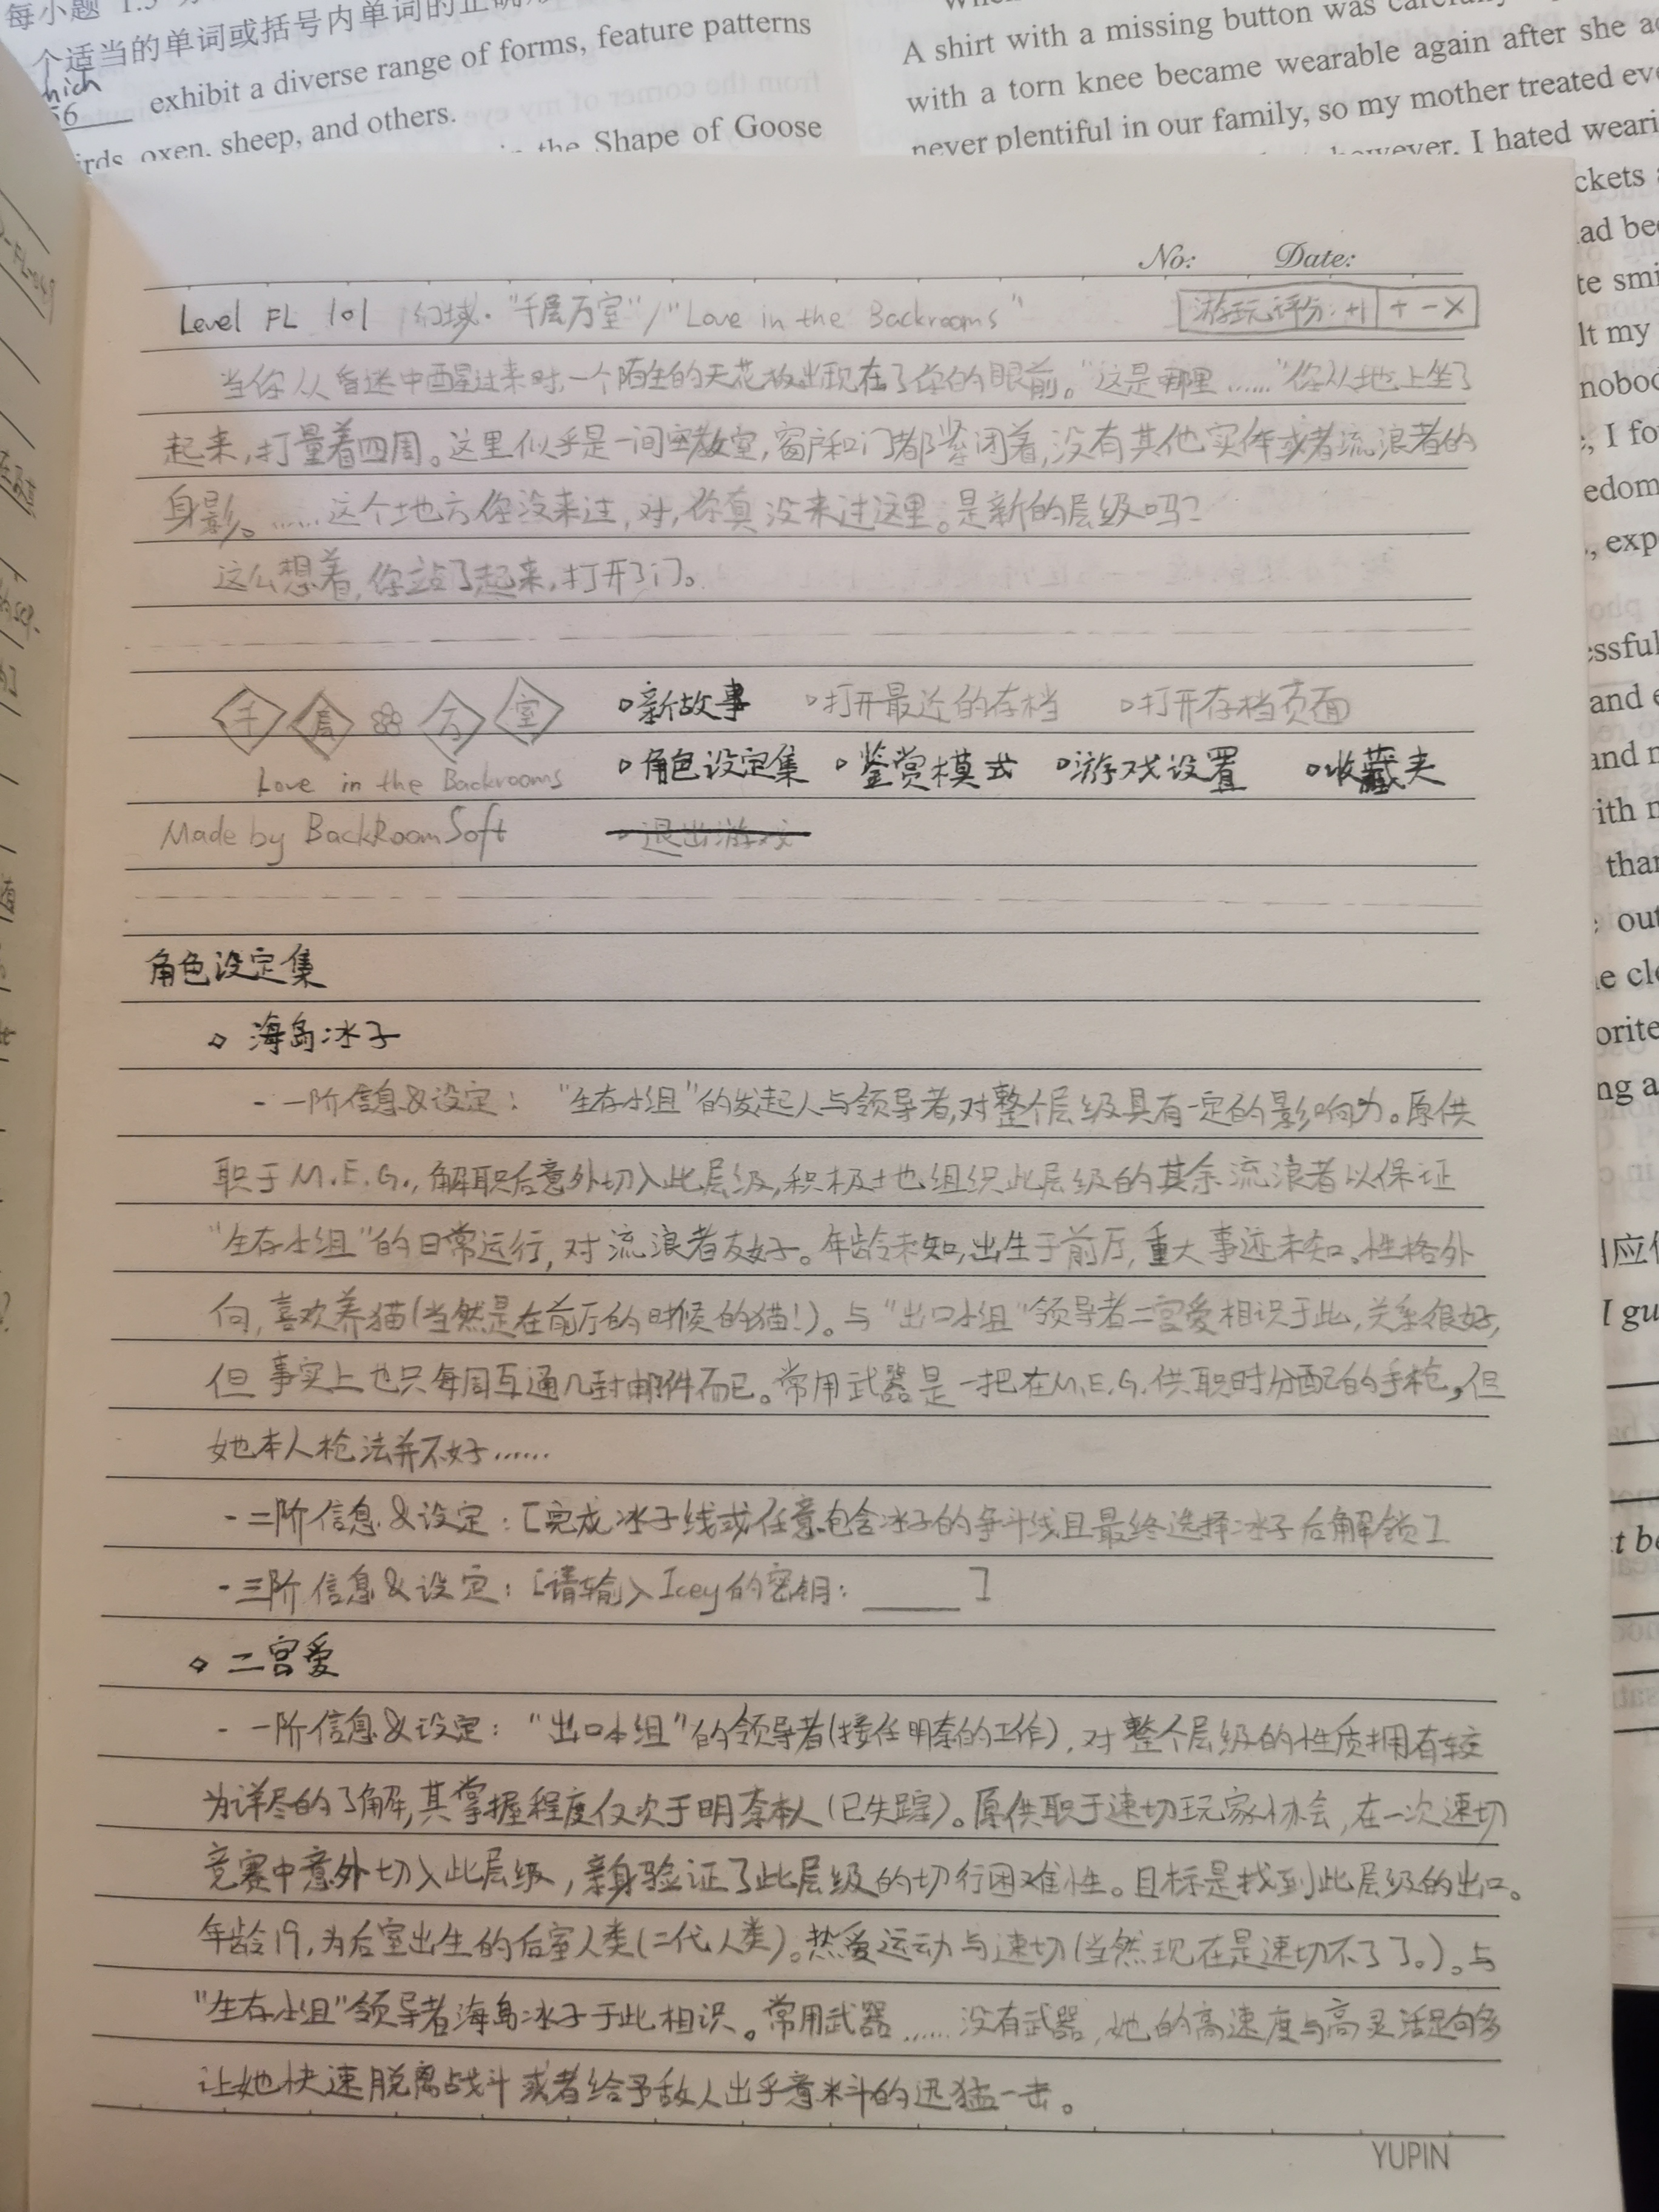 每小题 1.5
个适当的单词或括号内单词的正确
hich
56 exhibit a diverse range of forms, feature patterns
irds, oxen, sheep, and others.
the Shape of Goose
A shirt with a missing button was
with a torn knee became wearable again after she
never plentiful in our family, so my mother treated
however, I hated
No: Date:
Level FL 101 幻域·"千层万室"/"Love in the Backrooms" 游玩评分:+1 + - X
当你从昏迷中醒过来时,一个陌生的天花板出现在了你的眼前。"这是哪里……"你从地上坐了
起来,打量着四周。这里似乎是一间空教室,窗户和门都紧闭着,没有其他实体或者流浪者的
身影。……这个地方你没来过,对,你真没来过这里。是新的层级吗?
这么想着,你站了起来,打开了门。
千层万室 新故事 打开最近的存档 打开存档页面
Love in the Backrooms 角色设定集 鉴赏模式 游戏设置 收藏夹
Made by BackRoomSoft 退出游戏
角色设定集
◇ 海岛冰子
- 一阶信息&设定: "生存小组"的发起人与领导者,对整个层级具有一定的影响力。原供
职于M.E.G.,解职后意外切入此层级,积极地组织此层级的其余流浪者以保证
"生存小组"的日常运行,对流浪者友好。年龄未知,出生于前厅,重大事迹未知。性格外
向,喜欢养猫(当然是在前厅的时候的猫!)。与"出口小组"领导者二宫爱相识于此,关系很好,
但事实上也只每周互通几封邮件而已。常用武器是一把在M.E.G.供职时分配的手枪,但
她本人枪法并不好……
- 二阶信息&设定:[完成冰子线或任意包含冰子的争斗线且最终选择冰子后解锁]
- 三阶信息&设定:[请输入Icey的密钥:_____]
◇ 二宫爱
- 一阶信息&设定: "出口小组"的领导者(接任明奈的工作),对整个层级的性质拥有较
为详尽的了解,其掌握程度仅次于明奈本人(已失踪)。原供职于速切玩家协会,在一次速切
竞赛中意外切入此层级,亲身验证了此层级的切行困难性。目标是找到此层级的出口。
年龄19,为后室出生的后室人类(二代人类)。热爱运动与速切(当然现在是速切不了了。)。与
"生存小组"领导者海岛冰子于此相识。常用武器……没有武器,她的高速度与高灵活足够
让她快速脱离战斗或者给予敌人出乎意料的迅猛一击。
YUPIN